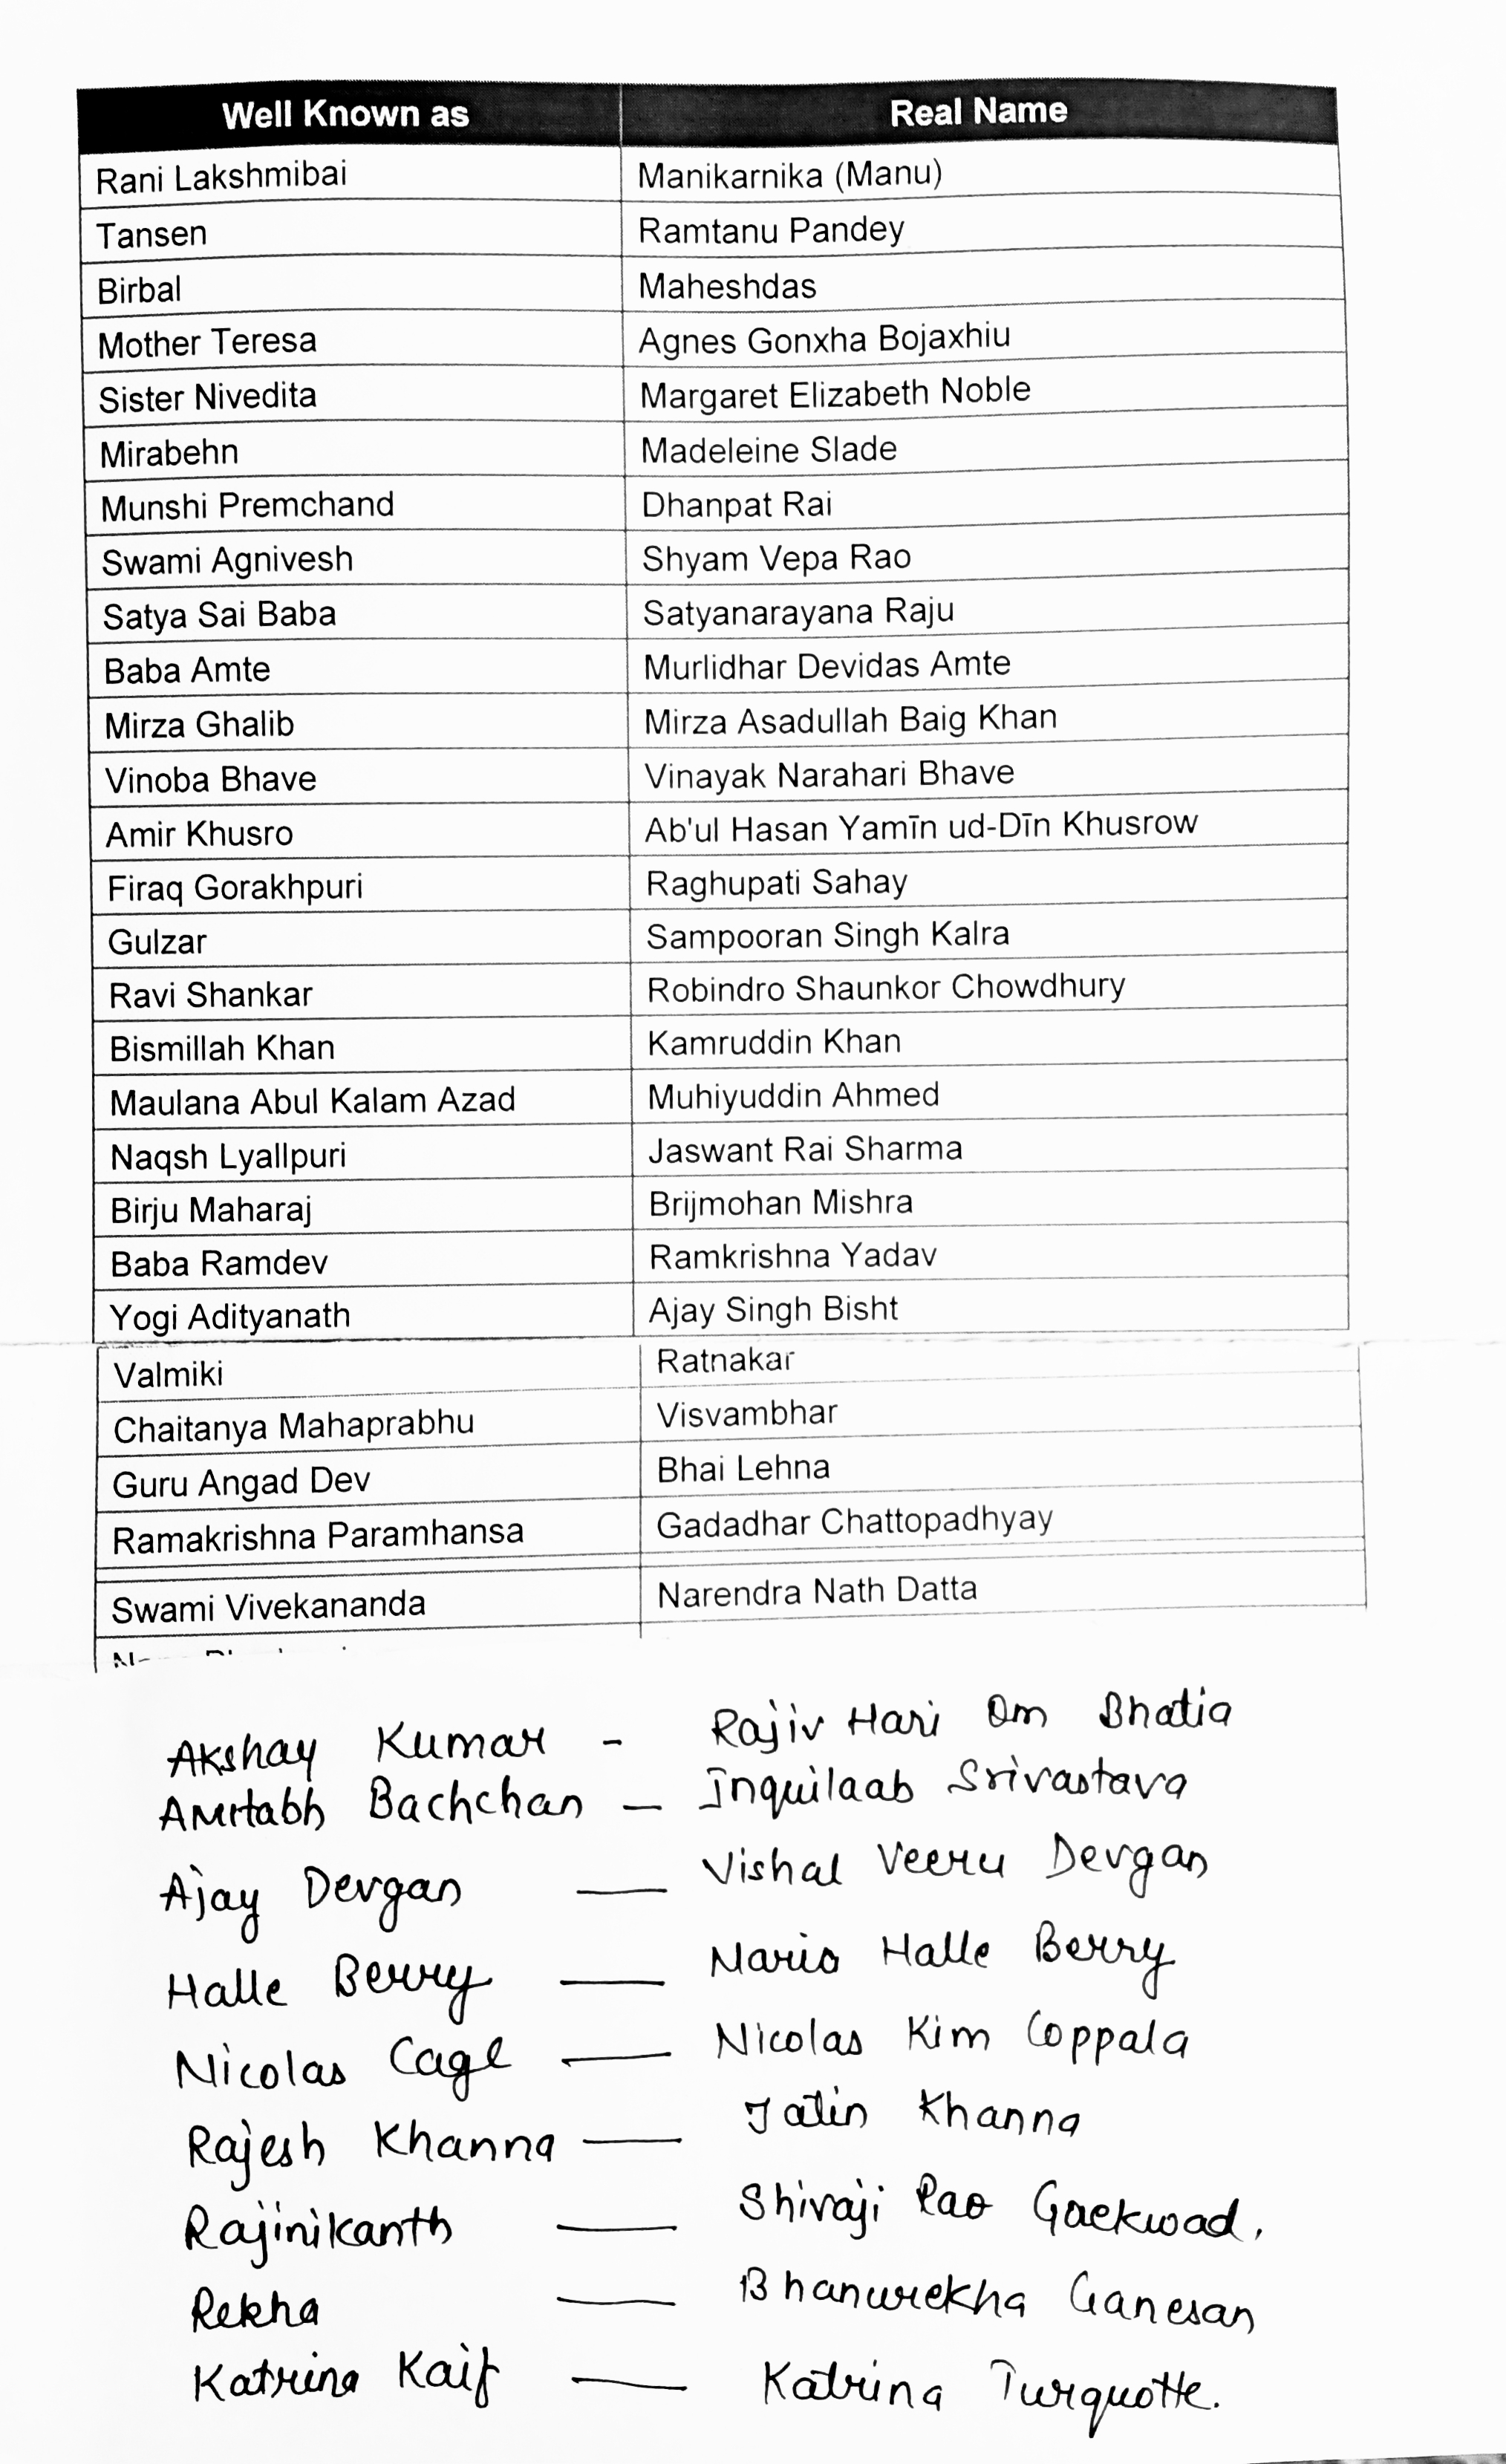 Well Known as Real Name
Rani Lakshmibai Manikarnika (Manu)
Tansen Ramtanu Pandey
Birbal Maheshdas
Mother Teresa Agnes Gonxha Bojaxhiu
Sister Nivedita Margaret Elizabeth Noble
Mirabehn Madeleine Slade
Munshi Premchand Dhanpat Rai
Swami Agnivesh Shyam Vepa Rao
Satya Sai Baba Satyanarayana Raju
Baba Amte Murlidhar Devidas Amte
Mirza Ghalib Mirza Asadullah Baig Khan
Vinoba Bhave Vinayak Narahari Bhave
Amir Khusro Ab'ul Hasan Yamīn ud-Dīn Khusrow
Firaq Gorakhpuri Raghupati Sahay
Gulzar Sampooran Singh Kalra
Ravi Shankar Robindro Shaunkor Chowdhury
Bismillah Khan Kamruddin Khan
Maulana Abul Kalam Azad Muhiyuddin Ahmed
Naqsh Lyallpuri Jaswant Rai Sharma
Birju Maharaj Brijmohan Mishra
Baba Ramdev Ramkrishna Yadav
Yogi Adityanath Ajay Singh Bisht
Valmiki Ratnakar
Chaitanya Mahaprabhu Visvambhar
Guru Angad Dev Bhai Lehna
Ramakrishna Paramhansa Gadadhar Chattopadhyay
Swami Vivekananda Narendra Nath Datta
Akshay Kumar - Rajiv Hari Om Bhatia
Amitabh Bachchan — Inquilaab Srivastava
Ajay Devgan — Vishal Veeru Devgan
Halle Berry — Maria Halle Berry
Nicolas Cage — Nicolas Kim Coppala
Rajesh Khanna — Jatin Khanna
Rajinikanth — Shivaji Rao Gaekwad.
Rekha — Bhanurekha Ganesan
Katrina Kaif — Katrina Turquotte.